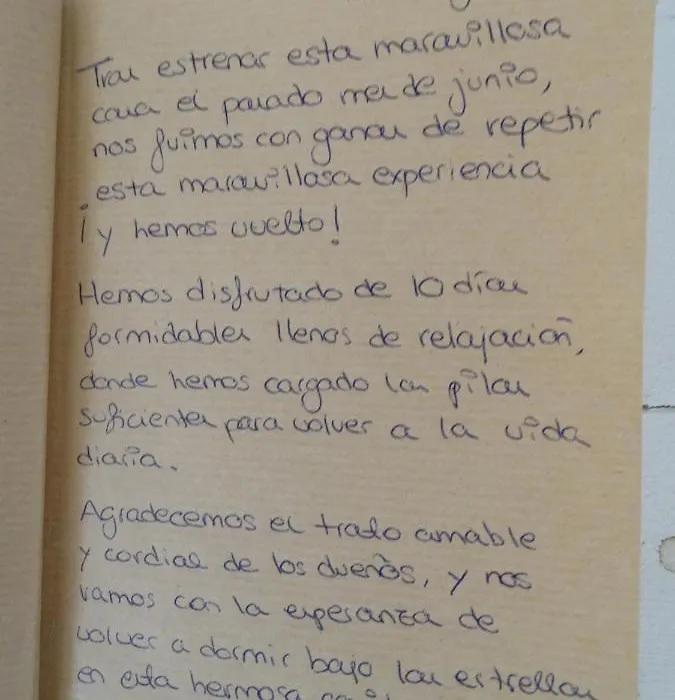 Tras estrenar esta maravillosa
casa el pasado mes de junio,
nos fuimos con ganas de repetir
esta maravillosa experiencia
¡y hemos vuelto!
Hemos disfrutado de 10 días
formidables llenos de relajación,
donde hemos cargado las pilas
suficientes para volver a la vida
diaria.
Agradecemos el trato amable
y cordial de los dueños, y nos
vamos con la esperanza de
volver a dormir bajo las estrellas
en esta hermosa